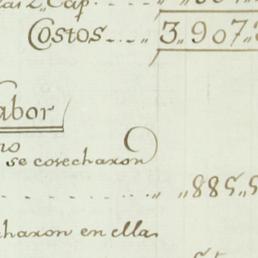 Cap.
Costos 3,,907,,
abor
no
se covecharon
,,885,,5
charon en ellas